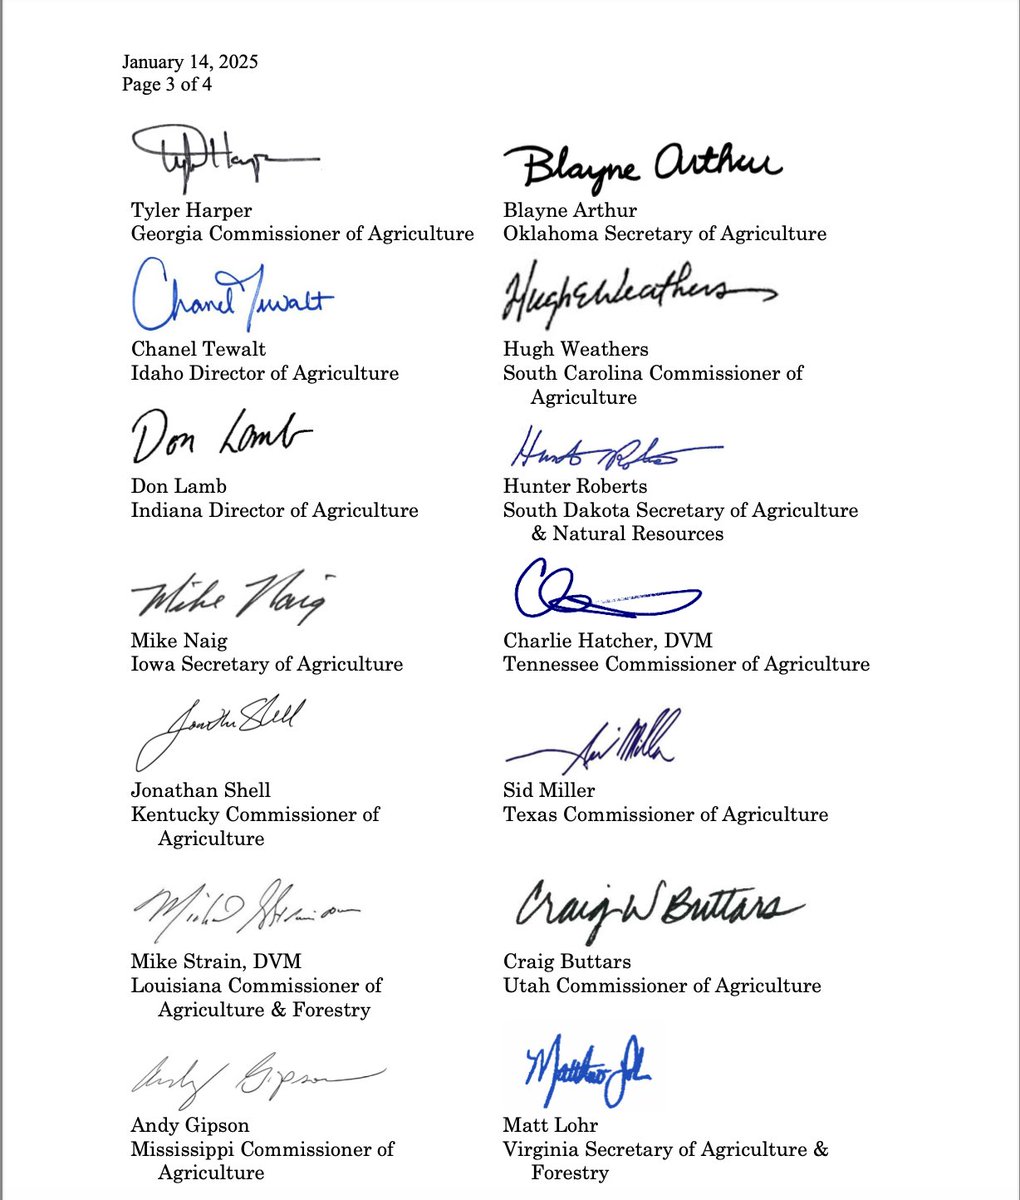 January 14, 2025
Page 3 of 4
Tyler Harper
Tyler Harper
Georgia Commissioner of Agriculture
Blayne Arthur
Blayne Arthur
Oklahoma Secretary of Agriculture
Chanel Tewalt
Chanel Tewalt
Idaho Director of Agriculture
Hugh E Weathers
Hugh Weathers
South Carolina Commissioner of
Agriculture
Don Lamb
Don Lamb
Indiana Director of Agriculture
Hunter Roberts
South Dakota Secretary of Agriculture
& Natural Resources
Mike Naig
Mike Naig
Iowa Secretary of Agriculture
Charlie Hatcher, DVM
Tennessee Commissioner of Agriculture
Jonathan Shell
Kentucky Commissioner of
Agriculture
Sid Miller
Texas Commissioner of Agriculture
Mike Strain, DVM
Louisiana Commissioner of
Agriculture & Forestry
Craig W Buttars
Craig Buttars
Utah Commissioner of Agriculture
Andy Gipson
Andy Gipson
Mississippi Commissioner of
Agriculture
Matt Lohr
Virginia Secretary of Agriculture &
Forestry